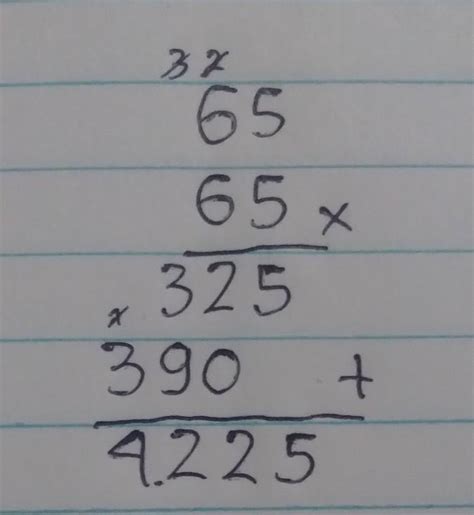 3 2
65
65 x
325
x
390 +
4.225